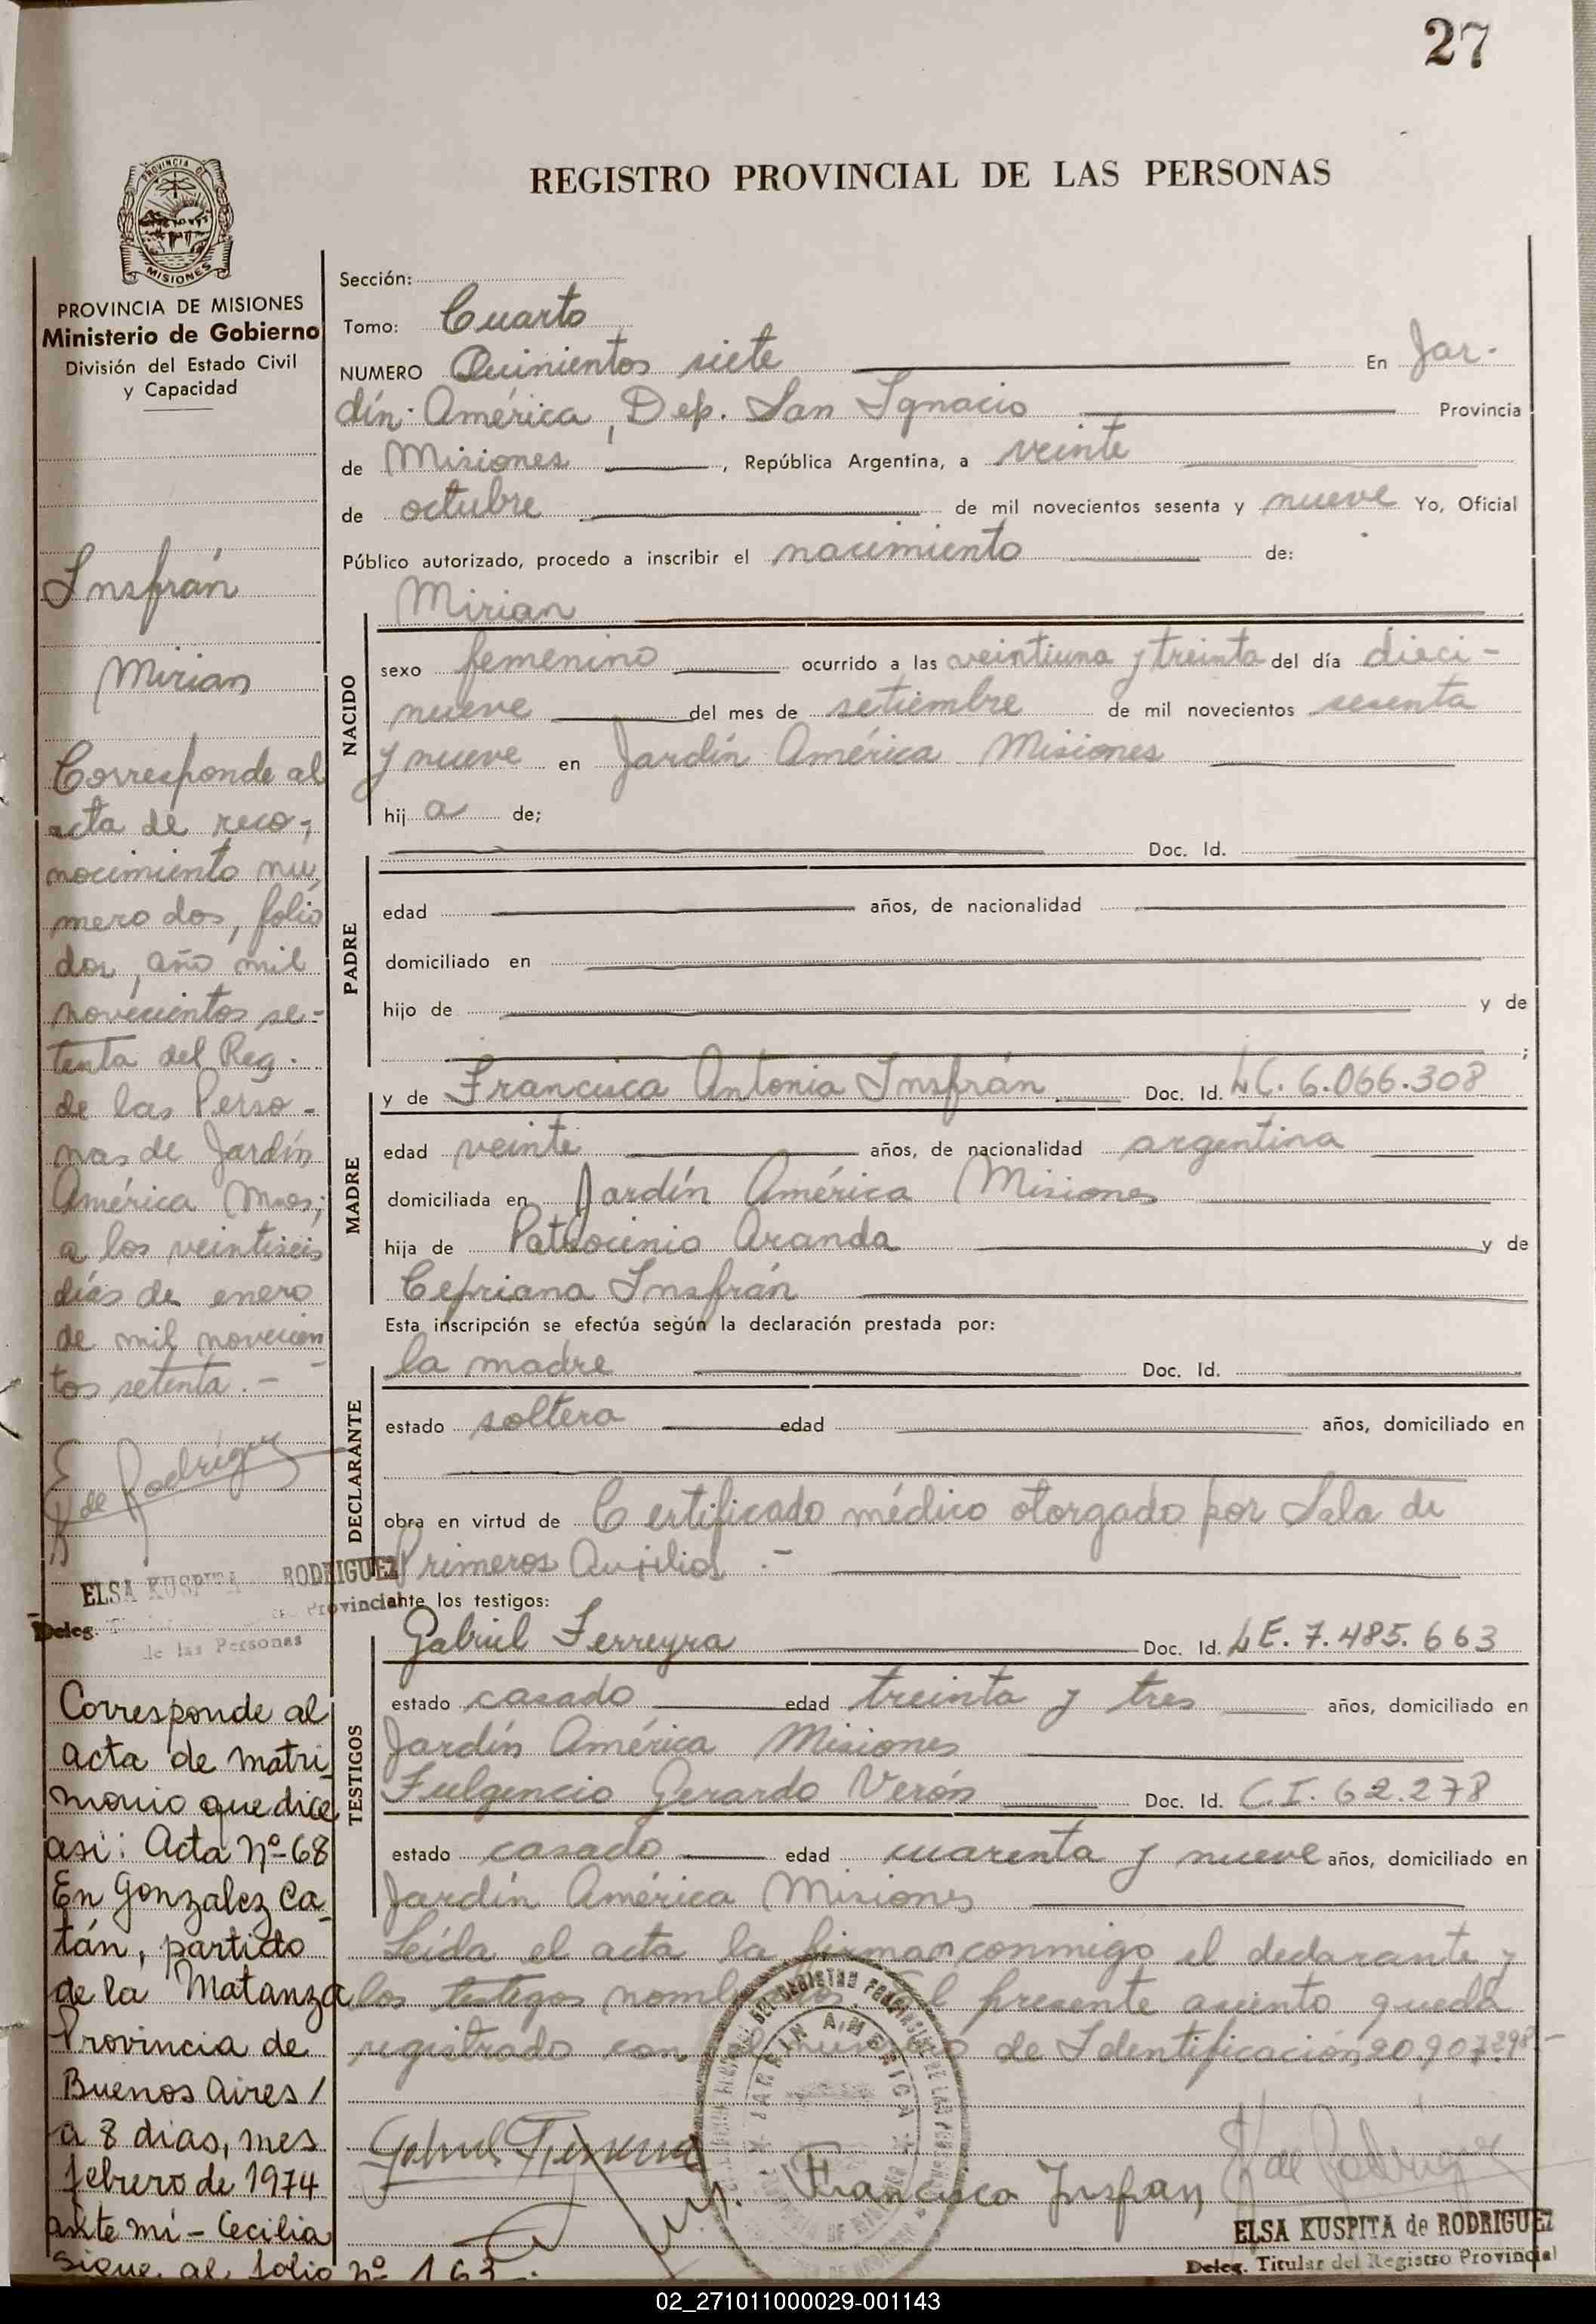 27
PROVINCIA DE
MISIONES
REGISTRO PROVINCIAL DE LAS PERSONAS
PROVINCIA DE MISIONES
Ministerio de Gobierno
División del Estado Civil
y Capacidad
Insfrán
Mirian
Corresponde al
acta de reco-
nocimiento nu
mero dos, folio
dos, año mil
novecientos se-
tenta del Reg.
de las Perso-
nas de Jardín
América Mnes;
a los veintiseis
días de enero
de mil novecien
tos setenta.-
E K de Rodríguez
ELSA KUSPITA RODRIGUEZ
Deleg. Provincial
de las Personas
Corresponde al
acta de matri
monio que dice
asi: Acta Nº-68
En Gonzalez Ca-
tán, partido
de la Matanza
Provincia de
Buenos Aires/
a 8 dias, mes
febrero de 1974
ante mi - Cecilia
Sigue al folio nº 163.
Sección:
Tomo: Cuarto
NUMERO Quinientos siete En Jar-
dín América, Dep. San Ignacio Provincia
de Misiones, República Argentina, a veinte
de octubre de mil novecientos sesenta y nueve Yo, Oficial
Público autorizado, procedo a inscribir el nacimiento de:
Mirian
NACIDO
sexo femenino ocurrido a las veintiuna y treinta del día dieci-
nueve del mes de setiembre de mil novecientos sesenta
y nueve en Jardín América Misiones
hij a de;
Doc. Id.
PADRE
edad años, de nacionalidad
domiciliado en
hijo de y de
;
MADRE
y de Francisca Antonia Insfrán Doc. Id. LC. 6.066.308
edad veinte años, de nacionalidad argentina
domiciliada en Jardín América Misiones
hija de Patrocinio Aranda y de
Cepriana Insfrán
Esta inscripción se efectúa según la declaración prestada por:
DECLARANTE
la madre Doc. Id.
estado soltera edad años, domiciliado en
obra en virtud de Certificado médico otorgado por Sala de
Primeros Auxilios .-
ante los testigos:
TESTIGOS
Gabriel Ferreyra Doc. Id. LE. 7.485.663
estado casado edad treinta y tres años, domiciliado en
Jardín América Misiones
Fulgencio Gerardo Verón Doc. Id. C.I. 62.278
estado casado edad cuarenta y nueve años, domiciliado en
Jardín América Misiones
Leída el acta la firman conmigo el declarante y
los testigos nombrados. El presente asiento queda
registrado con el número de Identificación 20.907.298-
JARDIN AMERICA
Francisca Insfran
K de Rodriguez
ELSA KUSPITA de RODRIGUEZ
Deleg. Titular del Registro Provincial
02_271011000029-001143